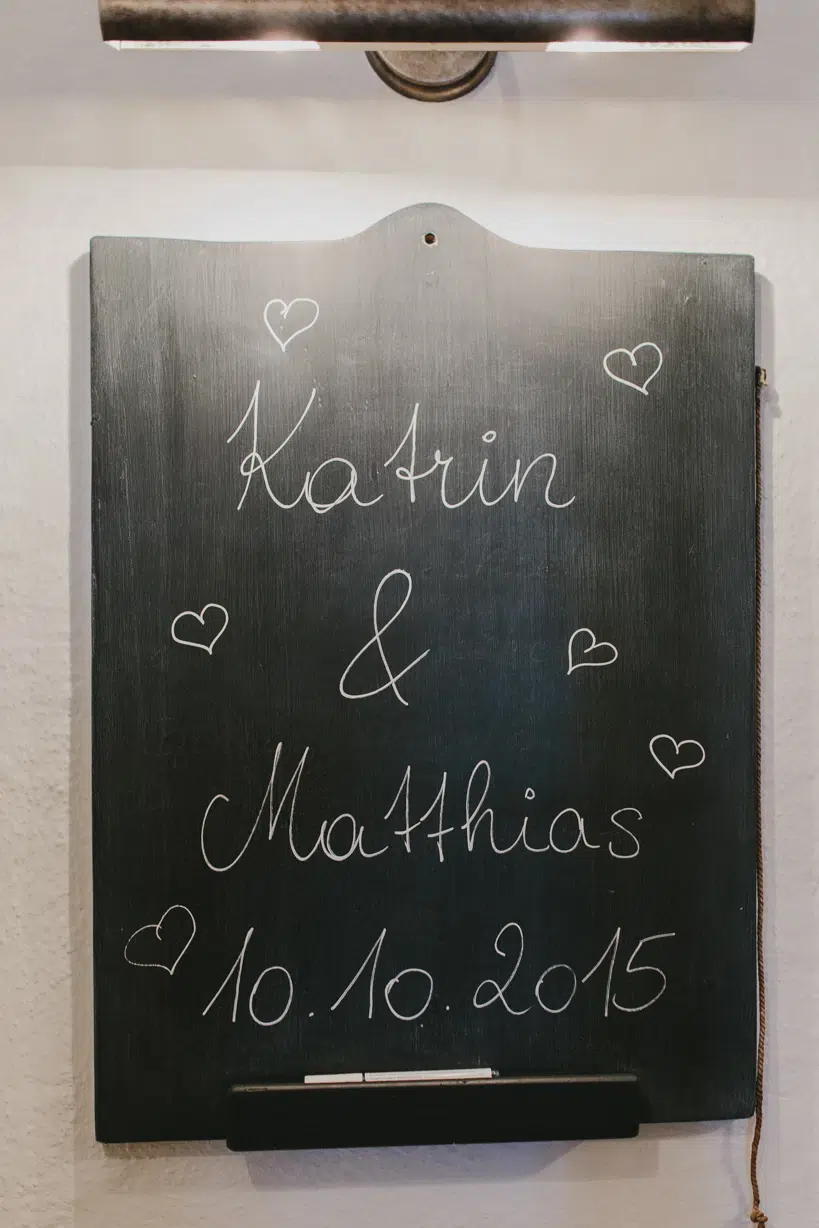 Katrin
&
Matthias
10.10.2015